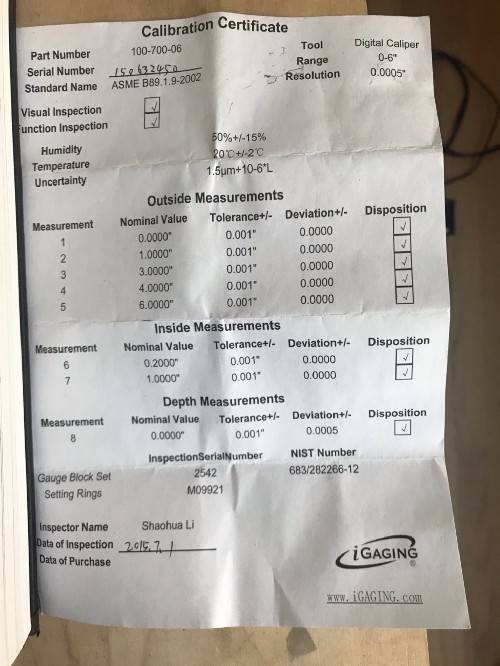 Calibration Certificate
Part Number 100-700-06 Tool Digital Caliper
Serial Number 150632450 Range 0-6"
Standard Name ASME B89.1.9-2002 Resolution 0.0005"
Visual Inspection √
unction Inspection √
Humidity 50%+/-15%
Temperature 20℃+/-2℃
Uncertainty 1.5μm+10-6*L
Outside Measurements
Measurement Nominal Value Tolerance+/- Deviation+/- Disposition
1 0.0000" 0.001" 0.0000 √
2 1.0000" 0.001" 0.0000 √
3 3.0000" 0.001" 0.0000 √
4 4.0000" 0.001" 0.0000 √
5 6.0000" 0.001" 0.0000 √
Inside Measurements
Measurement Nominal Value Tolerance+/- Deviation+/- Disposition
6 0.2000" 0.001" 0.0000 √
7 1.0000" 0.001" 0.0000 √
Depth Measurements
Measurement Nominal Value Tolerance+/- Deviation+/- Disposition
8 0.0000" 0.001" 0.0005 √
InspectionSerialNumber NIST Number
Gauge Block Set 2542 683/282266-12
Setting Rings M09921
Inspector Name Shaohua Li
Data of Inspection 2015.7.1
Data of Purchase
iGAGING®
www.iGAGING.com